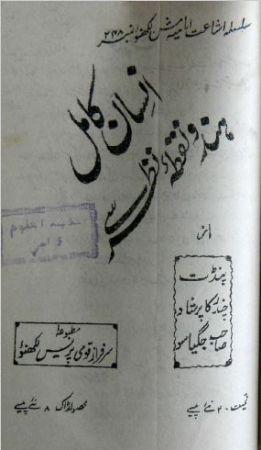 سلسلہ اشاعت امامیہ مشن لکھنؤ نمبر ۲۴۸
انسان کامل
ہندو نقطۂ نظر سے
از
پنڈت
چندرکا پرشاد
صاحب جگیاسو
مطبوعہ
سرفراز قومی پریس لکھنؤ
قیمت ۲۰ نئے پیسے
محصولڈاک ۸ نئے پیسے